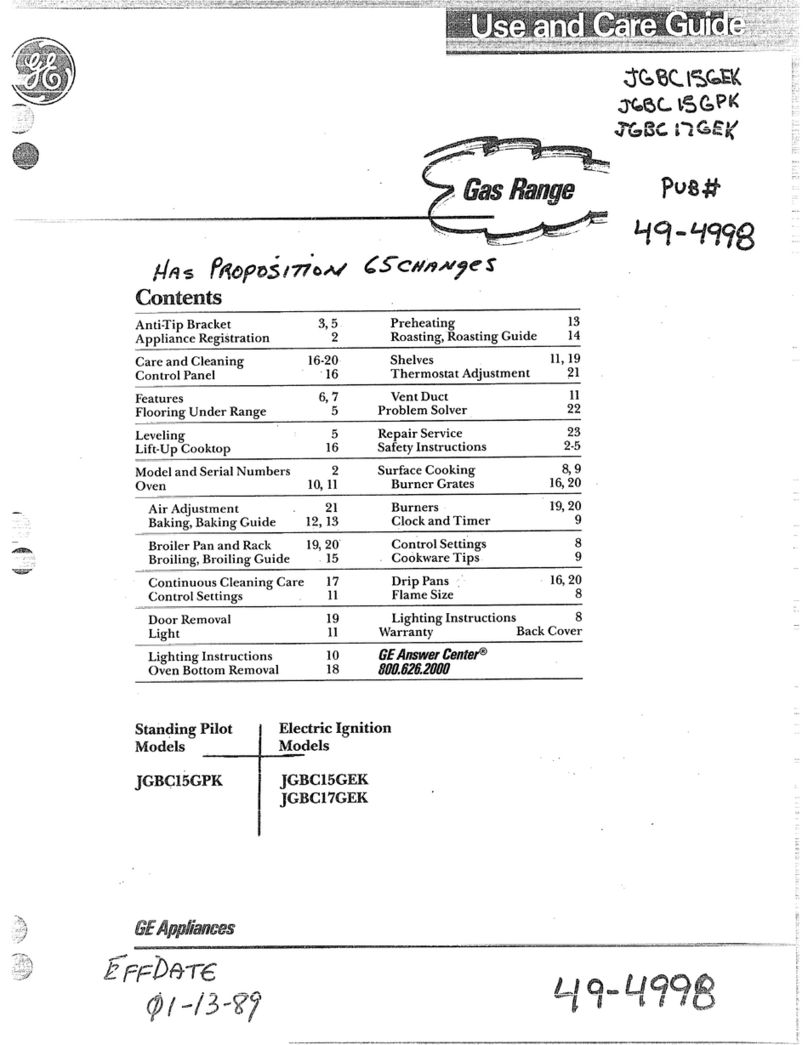 Use and Care Guide
GE
JGBC15GEK
JGBC15GPK
JGBC17GEK
Gas Range
PUB#
49-4998
HAS PROPOSITION 65 CHANGES
Contents
Anti-Tip Bracket 3, 5
Appliance Registration 2
Care and Cleaning 16-20
Control Panel 16
Features 6, 7
Flooring Under Range 5
Leveling 5
Lift-Up Cooktop 16
Model and Serial Numbers 2
Oven 10, 11
Air Adjustment 21
Baking, Baking Guide 12, 13
Broiler Pan and Rack 19, 20
Broiling, Broiling Guide 15
Continuous Cleaning Care 17
Control Settings 11
Door Removal 19
Light 11
Lighting Instructions 10
Oven Bottom Removal 18
Preheating 13
Roasting, Roasting Guide 14
Shelves 11, 19
Thermostat Adjustment 21
Vent Duct 11
Problem Solver 22
Repair Service 23
Safety Instructions 2-5
Surface Cooking 8, 9
Burner Grates 16, 20
Burners 19, 20
Clock and Timer 9
Control Settings 8
Cookware Tips 9
Drip Pans 16, 20
Flame Size 8
Lighting Instructions 8
Warranty Back Cover
GE Answer Center®
800.626.2000
Standing Pilot
Models
JGBC15GPK
Electric Ignition
Models
JGBC15GEK
JGBC17GEK
GE Appliances
EFFDATE
01-13-89
49-4998